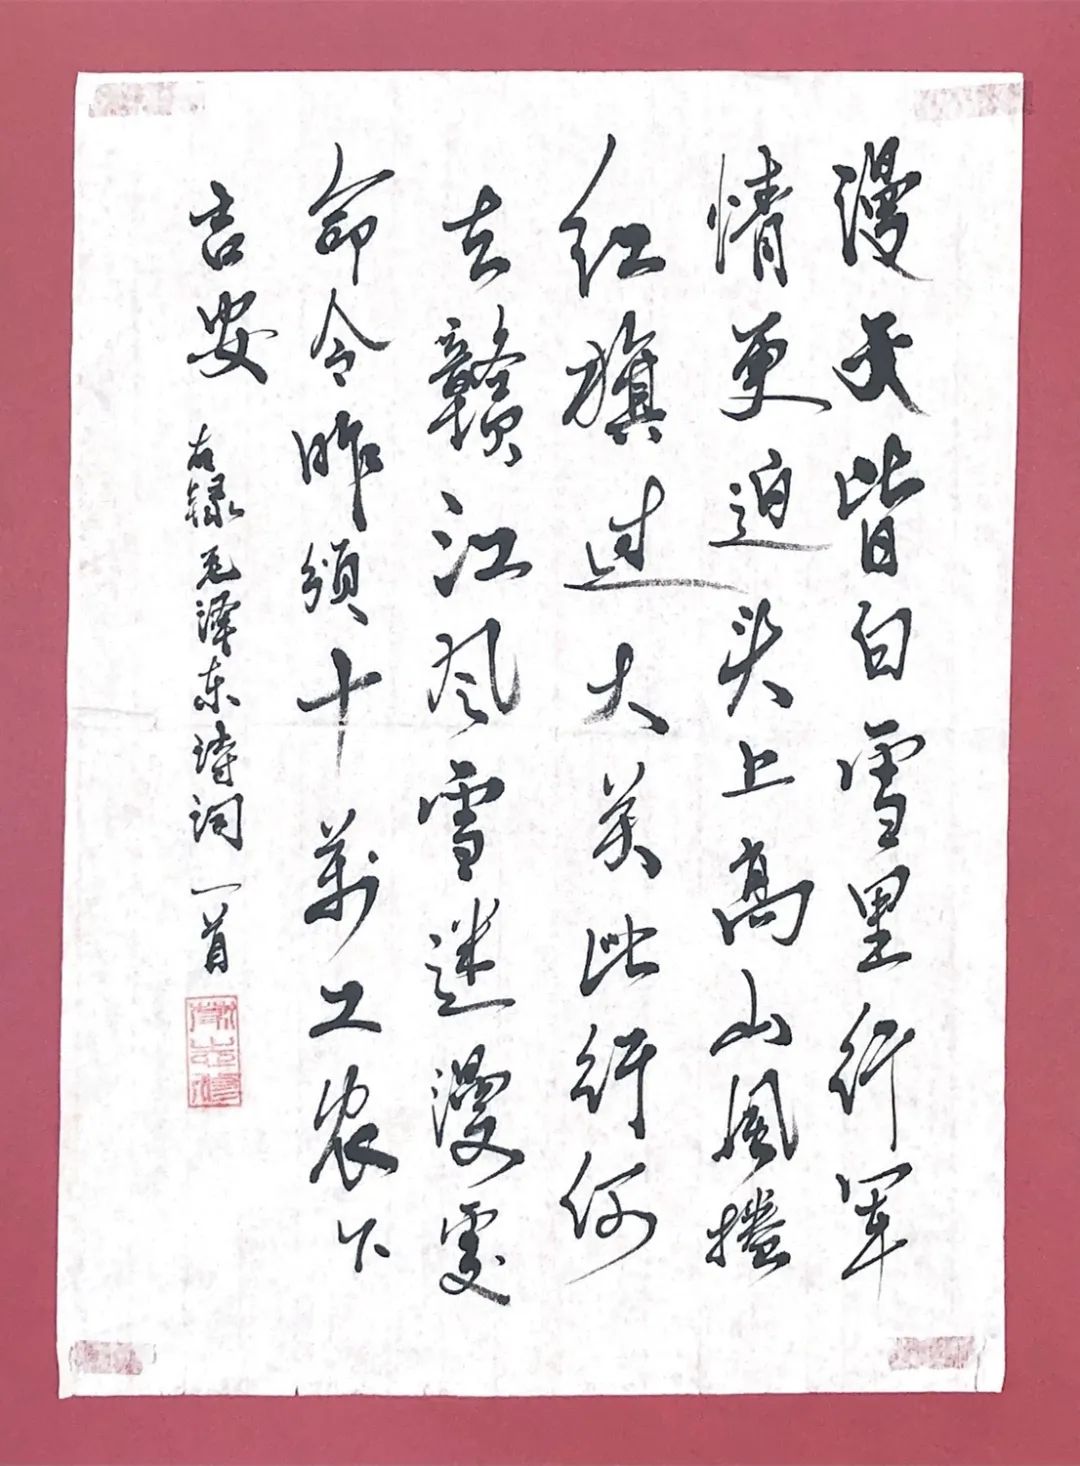 漫天皆白雪里行军
情更迫头上高山風捲
红旗过大关此行何
去赣江风雪迷漫處
命令昨颁十萬工农下
吉安
右録毛泽东诗词一首